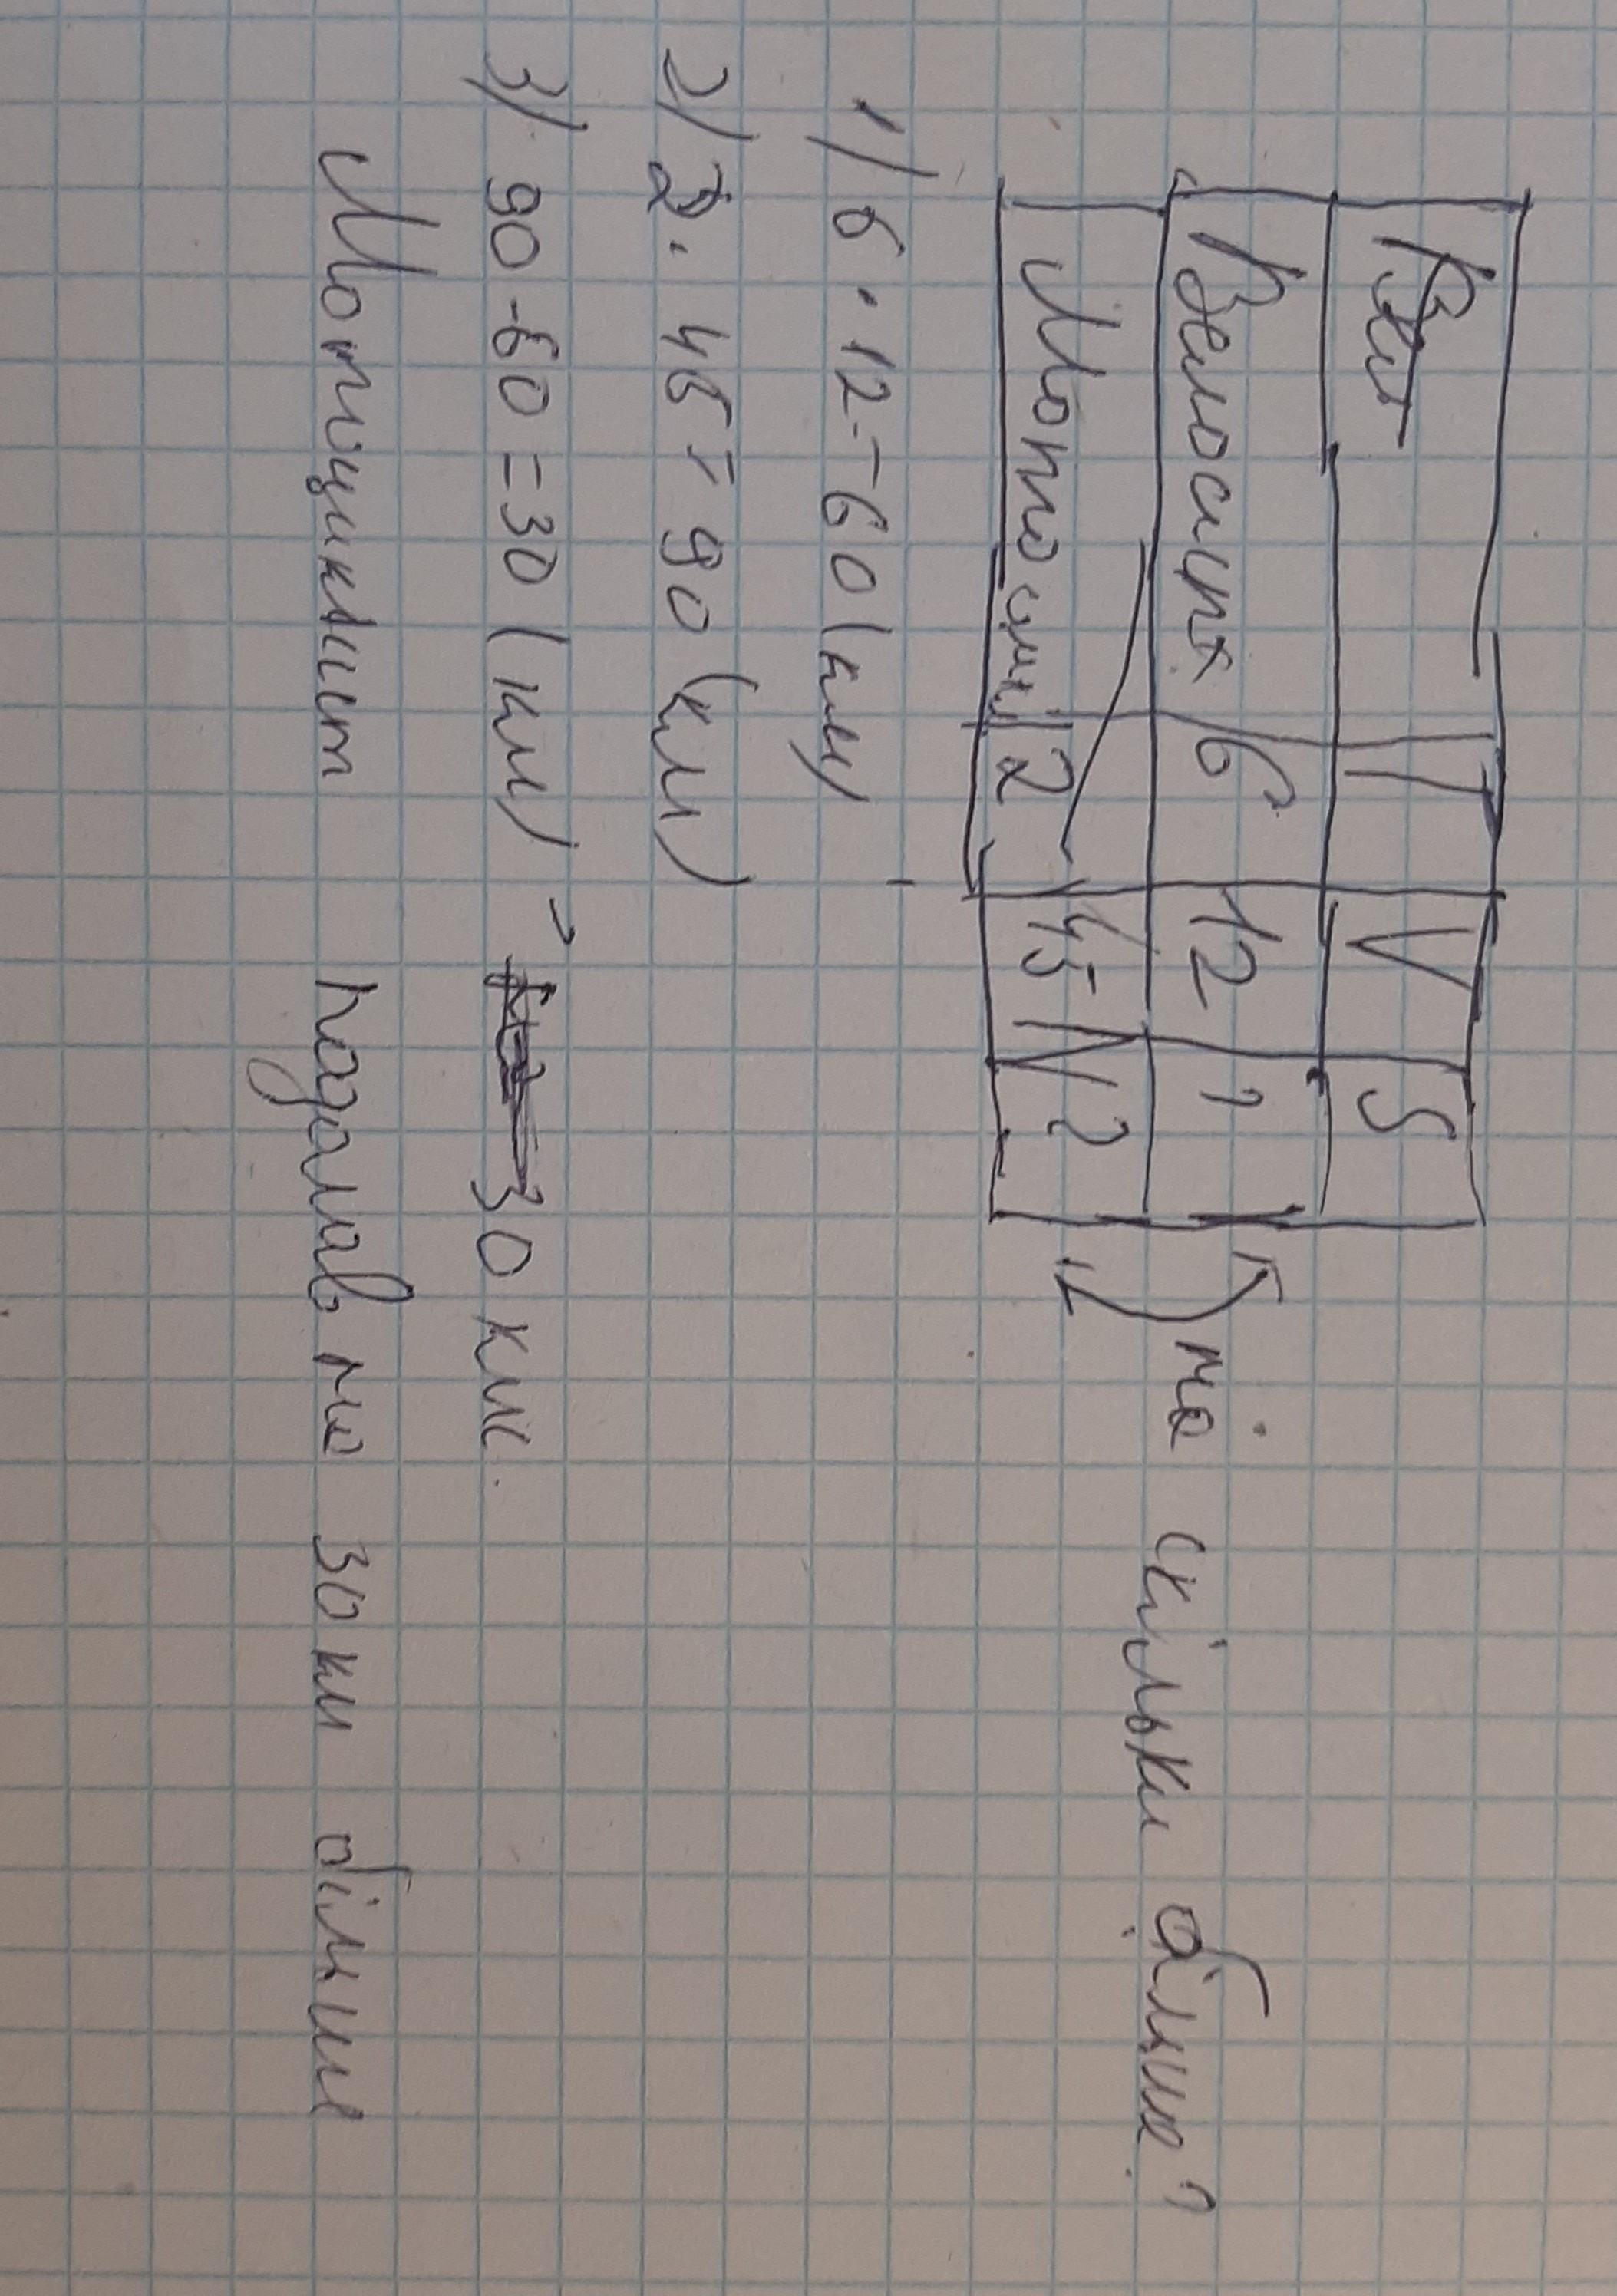 T V S
Велосипх 6 12 ?
Мотоцикл 2 45 ?
на скільки більше?
1) 6 · 12 = 60 (км)
2) 2 · 45 = 90 (км)
3) 90 - 60 = 30 (км) - 30 км.
Мотоцикліст подолав на 30 км більше